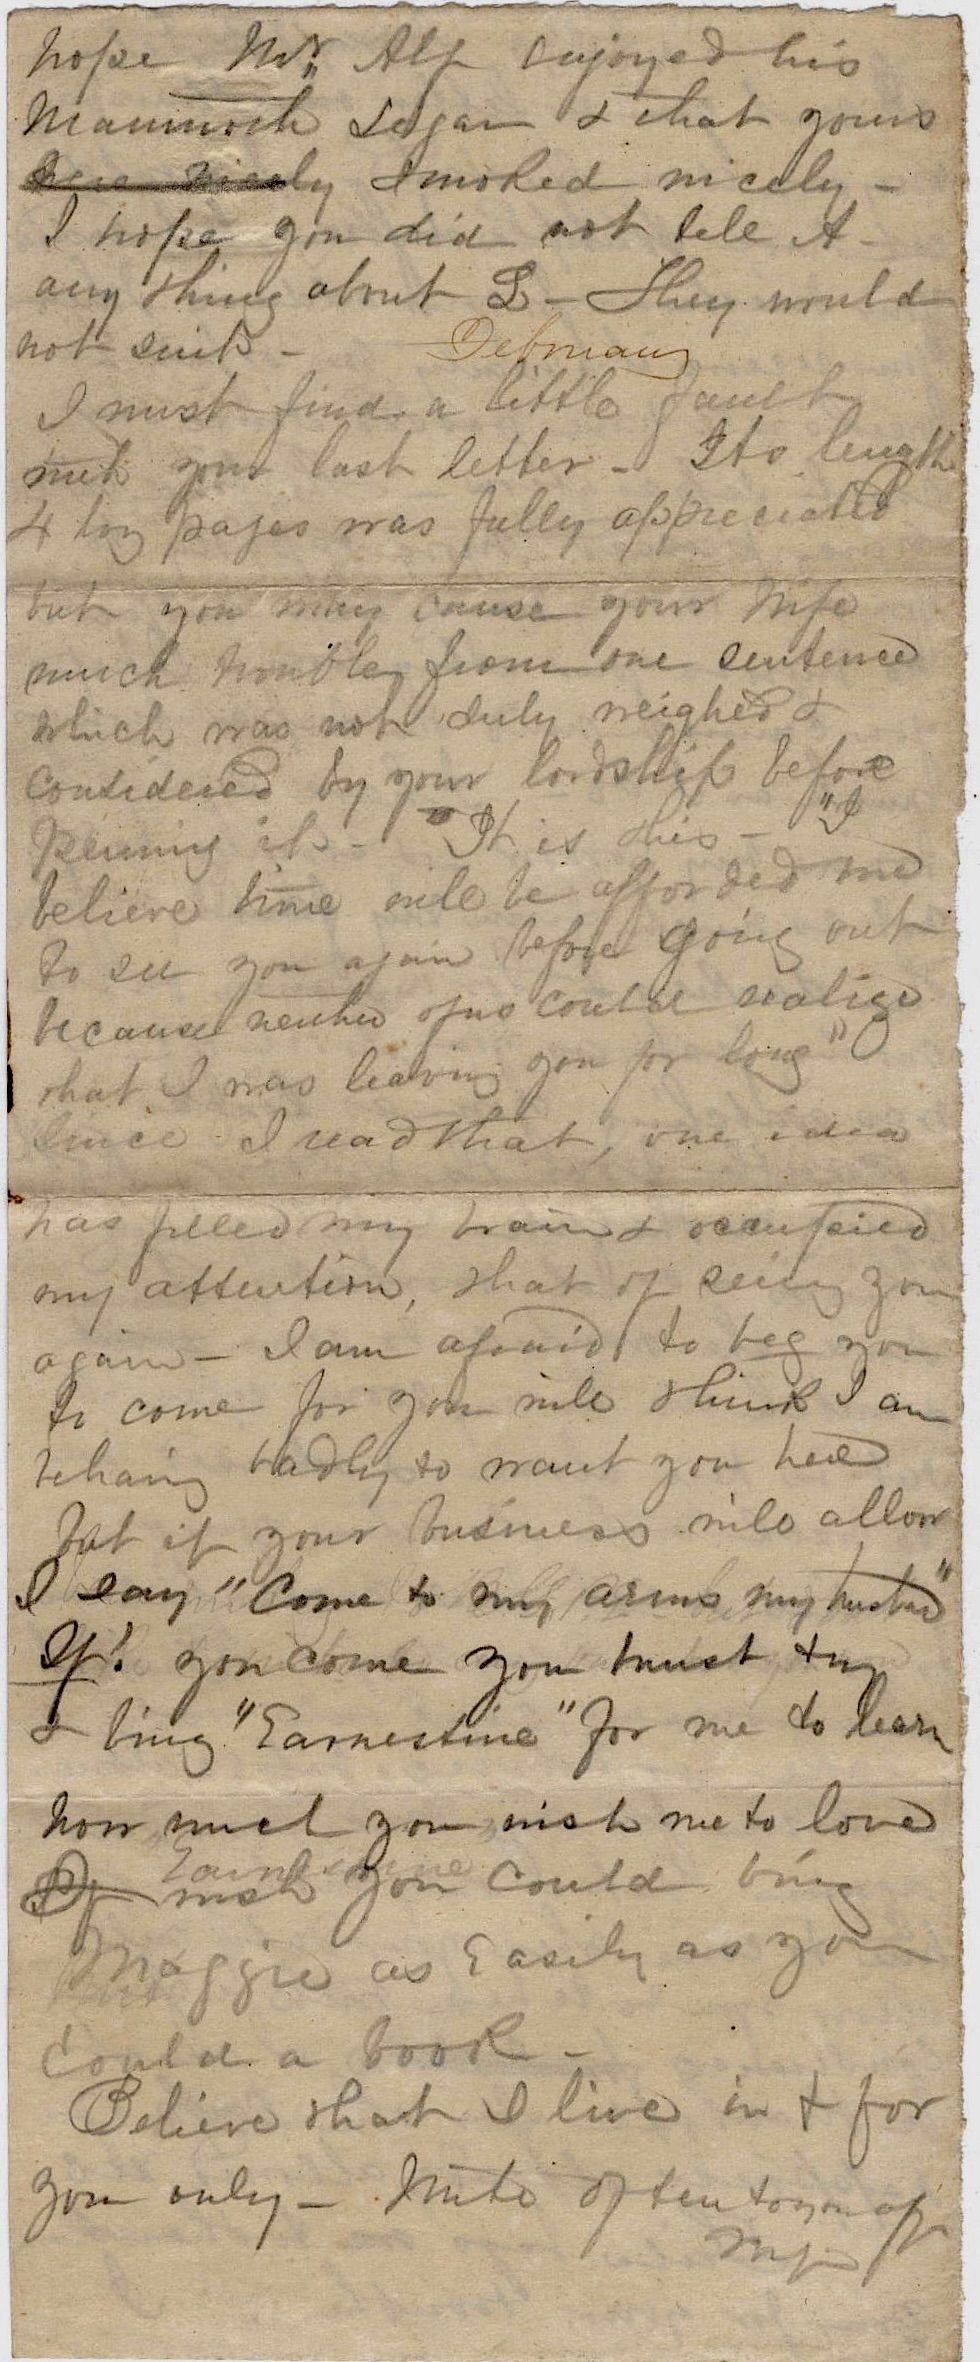 hope Mr. Alf enjoyed his
Mammoth Segar & that yours
nicely smoked nicely -
I hope you did not tell A -
any thing about L - They would
not suit -
February
I must find a little fault
with your last letter - Its length
4 long pages was fully appreciated
but you may cause your wife
much trouble from one sentence
which was not duly weighed &
considered by your lordship before
penning it - It is this - "I
believe time will be afforded me
to see you again before going out
because neither of us could realize
that I was leaving you for long"
Since I read that, one idea
has filled my brain & occupied
my attention, that of seeing you
again - I am afraid to beg you
to come for you will think I am
behaving badly to want you here
but if your business will allow
I say "Come to my arms my husband"
If! you come you must try
& bring "Earnestine" for me to learn
how much you wish me to love
Earnestine
I wish you could bring
Maggie as Easily as you
could a book -
Believe that I live in & for
you only - Write often to your aff
Wife